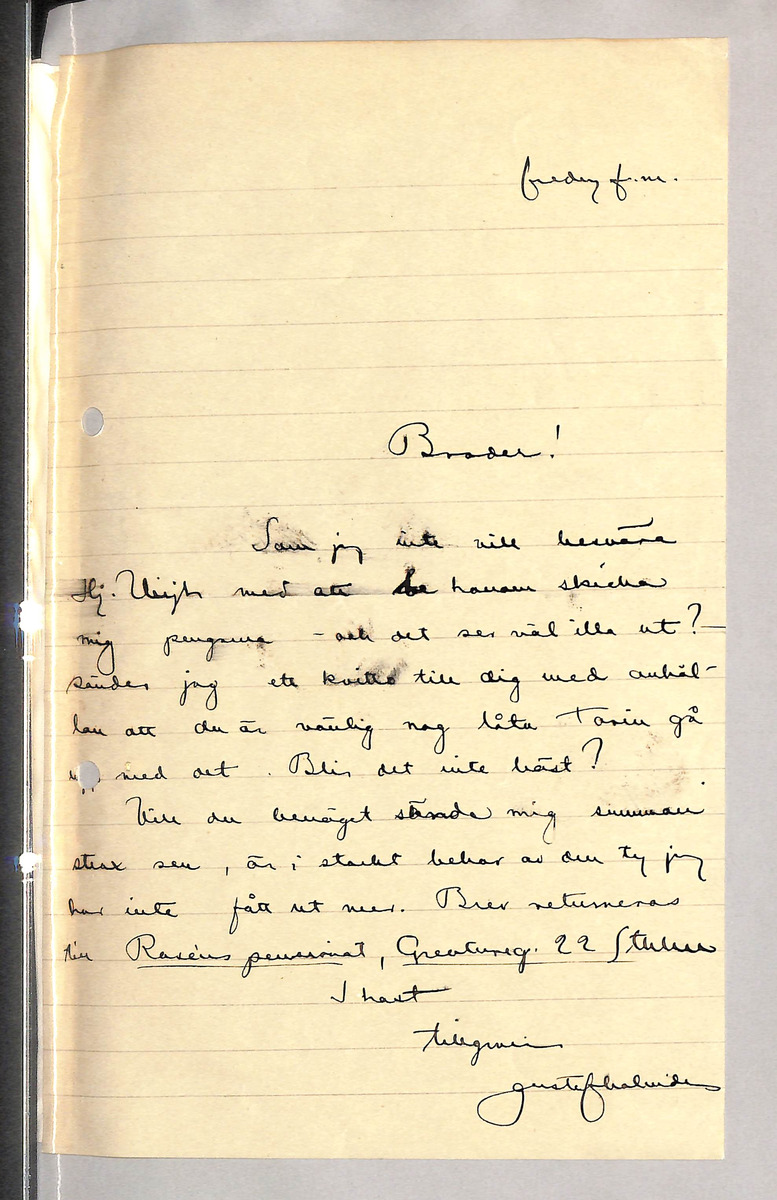 fredag f.m.
Broder!
Som jag inte vill besvära
Hj. med att be honom skicka
mig pengarna - och det ser väl illa ut? -
sänder jag ett kvitto till dig med anhål-
lan att du är vänlig nog låta gå
med det. Blir det inte bäst?
Vill du benäget sända mig summan
strax sen, är i starkt behov av den ty jag
har inte fått ut mer. Brev returneras
till Roséns pensionat, Grevtureg. 22 Sthlm
I hast
tillgivne